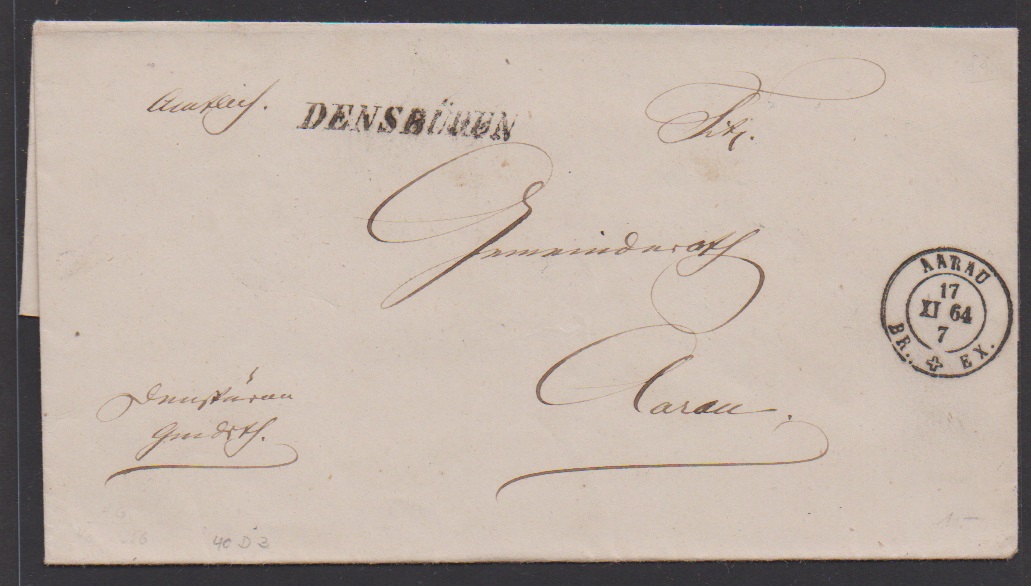 Amtlich.
DENSBÜREN
Tit.
Gemeinderath
AARAU
17
XI 64
7
BR. EX.
Aarau.
Densbüren
Gmdrth.
40 D 3